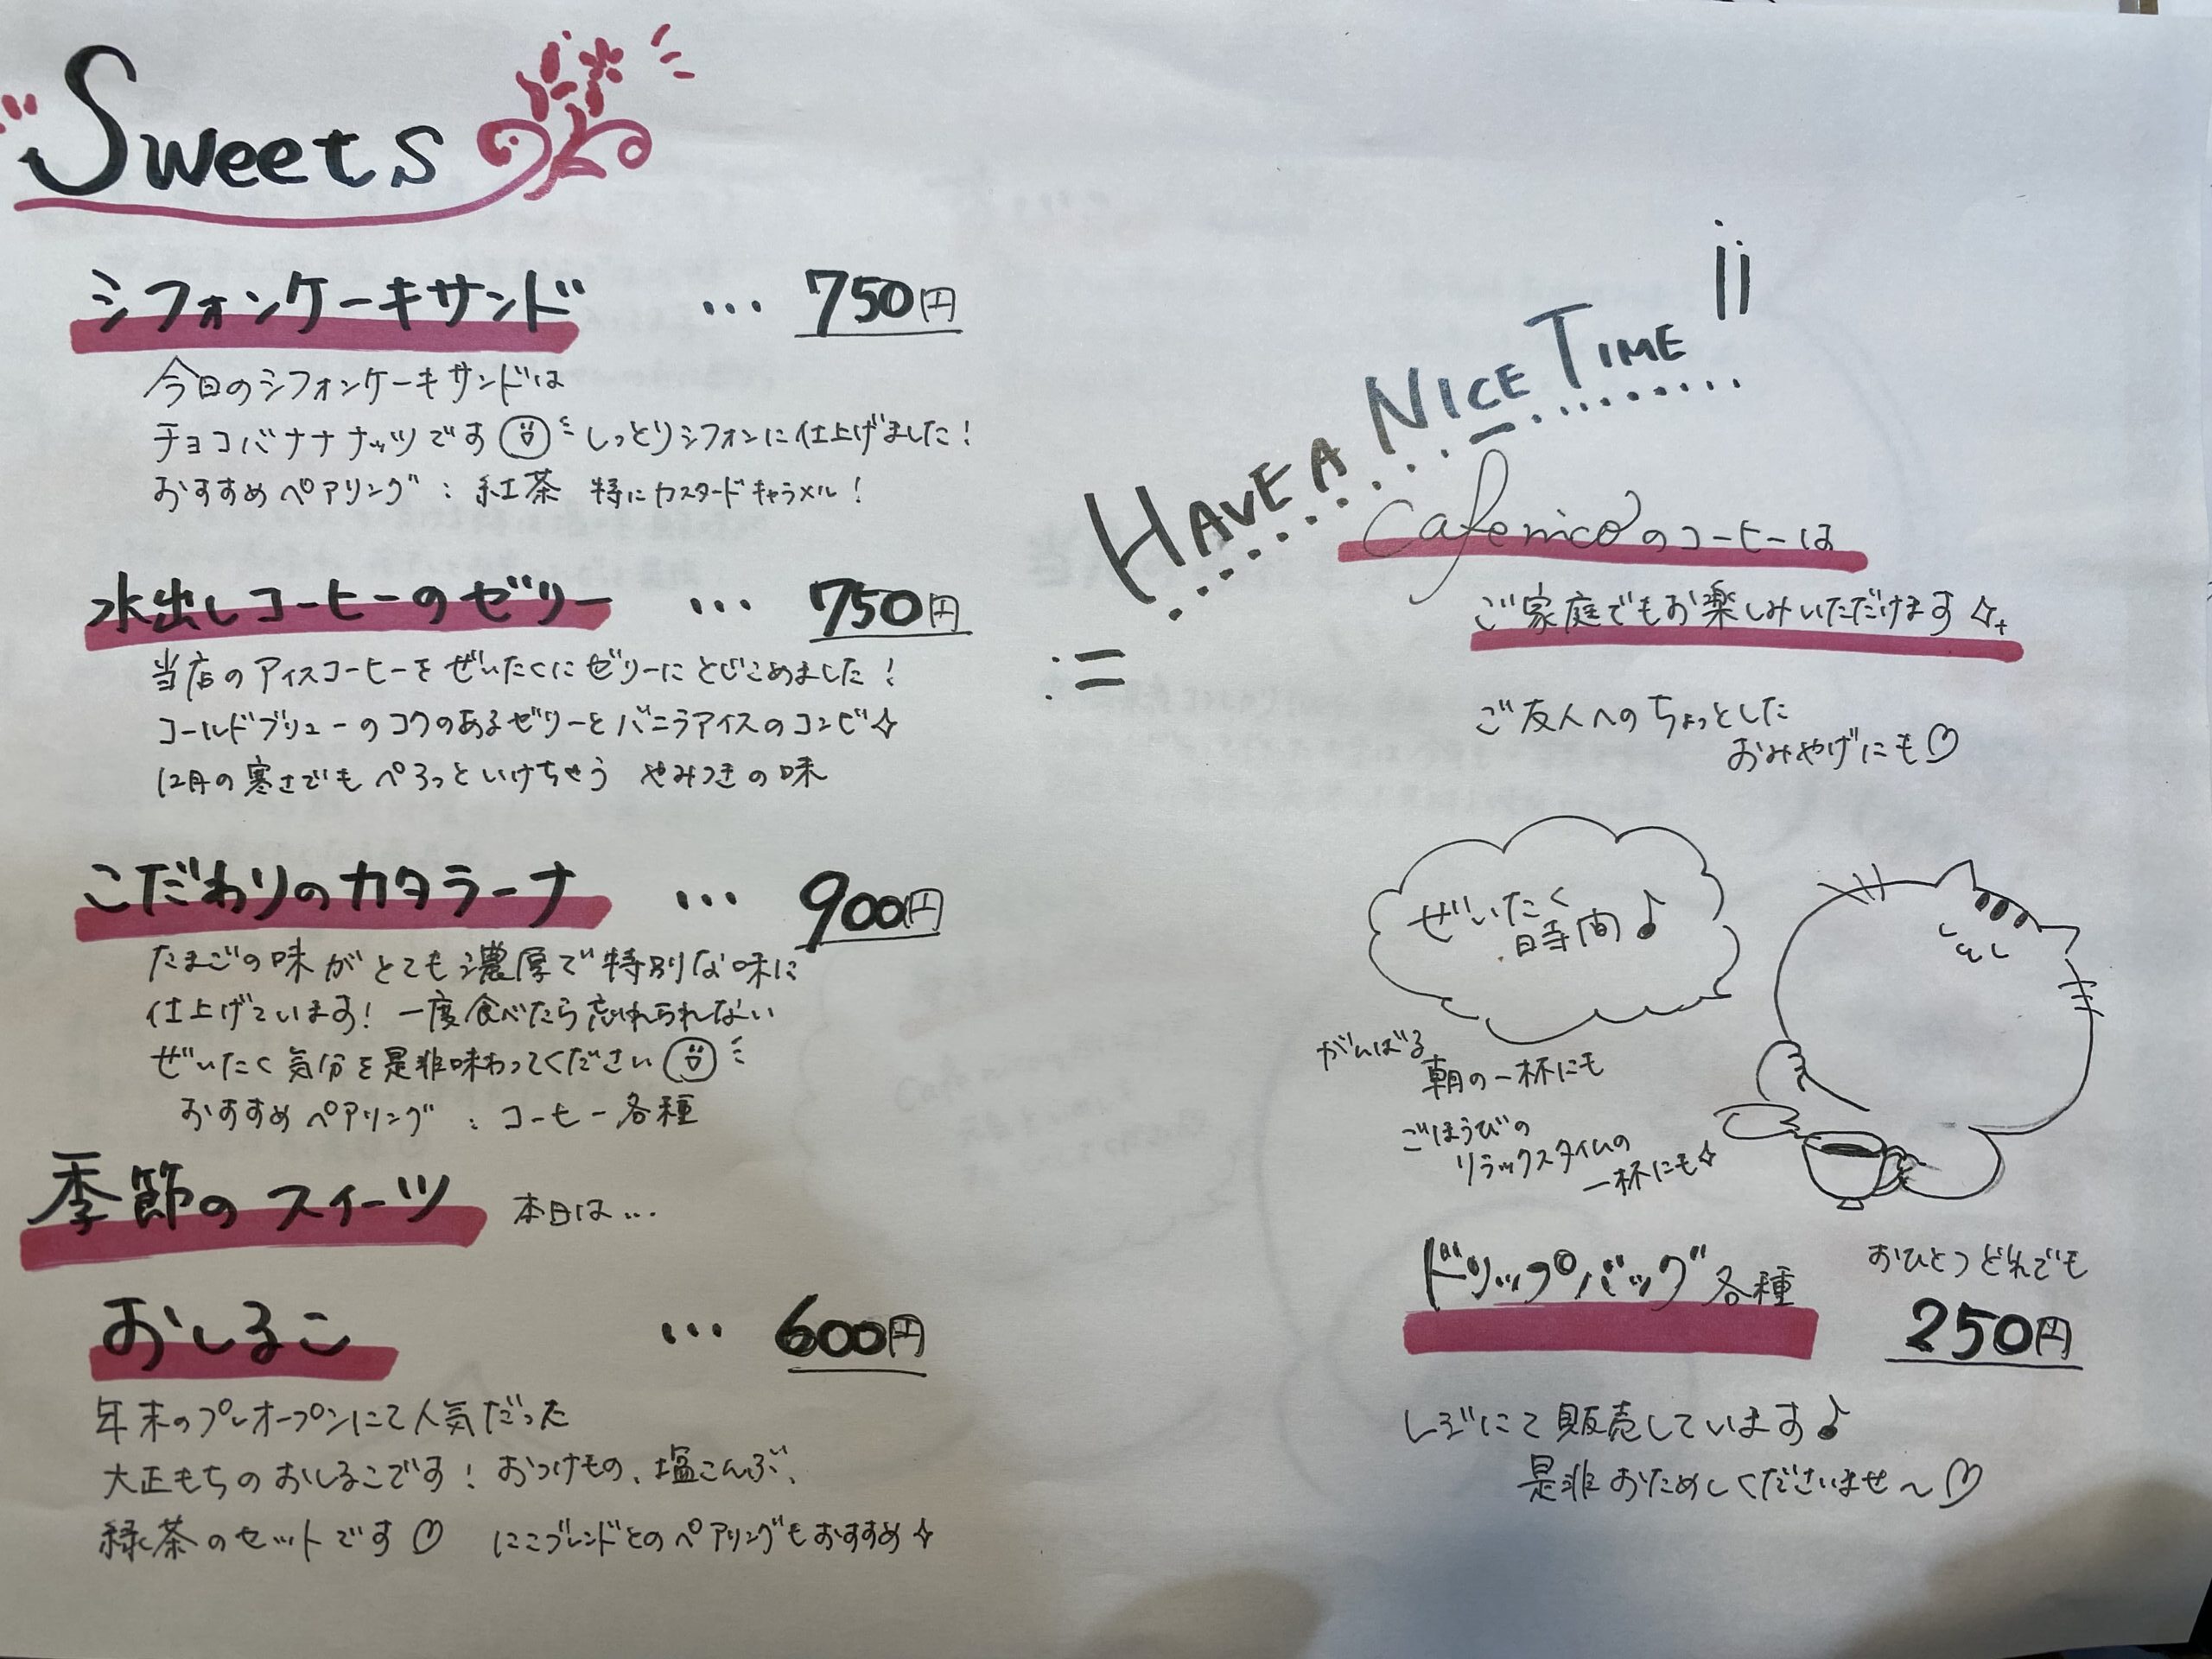 Sweets
シフォンケーキサンド … 750円
今日のシフォンケーキサンドは
チョコバナナナッツです しっとりシフォンに仕上げました！
おすすめペアリング：紅茶 特にカスタードキャラメル！
水出しコーヒーのゼリー … 750円
当店のアイスコーヒーをぜいたくにゼリーにとじこめました！
コールドブリューのコクのあるゼリーとバニラアイスのコンビ☆
12月の寒さでもぺろっといけちゃう やみつきの味
こだわりのカタラーナ … 900円
たまごの味がとても濃厚で特別な味に
仕上げています！一度食べたら忘れられない
ぜいたく気分を是非味わってください
おすすめペアリング：コーヒー各種
季節のスイーツ 本日は…
おしるこ … 600円
年末のプレオープンにて人気だった
大正もちのおしるこです！おつけもの、塩こんぶ、
緑茶のセットです♡ にこブレンドとのペアリングもおすすめ☆
HAVE A NICE TIME
cafe nicoのコーヒーは
ご家庭でもお楽しみいただけます☆
ご友人へのちょっとした
おみやげにも♡
ぜいたく
時間♪
がんばる
朝の一杯にも
ごほうびの
リラックスタイムの
一杯にも☆
ドリップバッグ各種
おひとつどれでも
250円
レジにて販売しています♪
是非おためしくださいませ〜♡